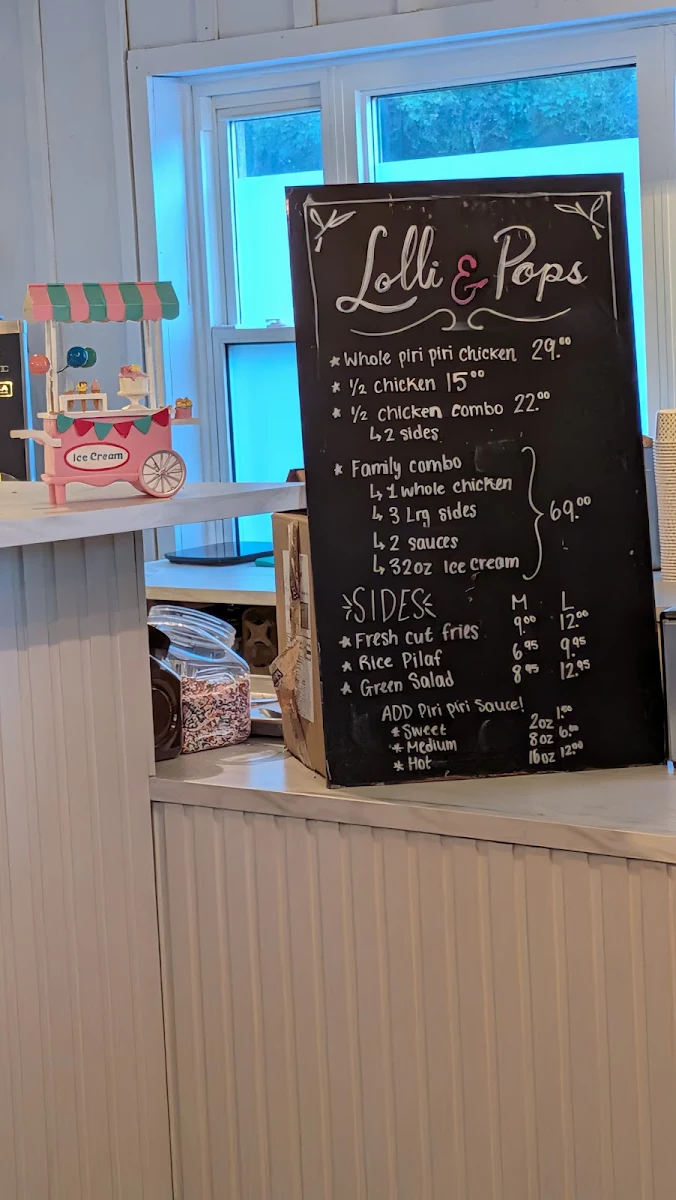 Lolli & Pops
* Whole piri piri chicken 29.00
* 1/2 chicken 15.00
* 1/2 chicken combo 22.00
↳ 2 sides
* Family combo
↳ 1 whole chicken
↳ 3 Lrg sides
↳ 2 sauces
↳ 32oz Ice cream
69.00
SIDES M L
* Fresh cut fries 9.00 12.00
* Rice Pilaf 6.95 9.95
* Green Salad 8.95 12.95
ADD Piri piri Sauce!
* Sweet 2oz 1.50
* Medium 8oz 6.00
* Hot 16oz 12.00
Ice Cream